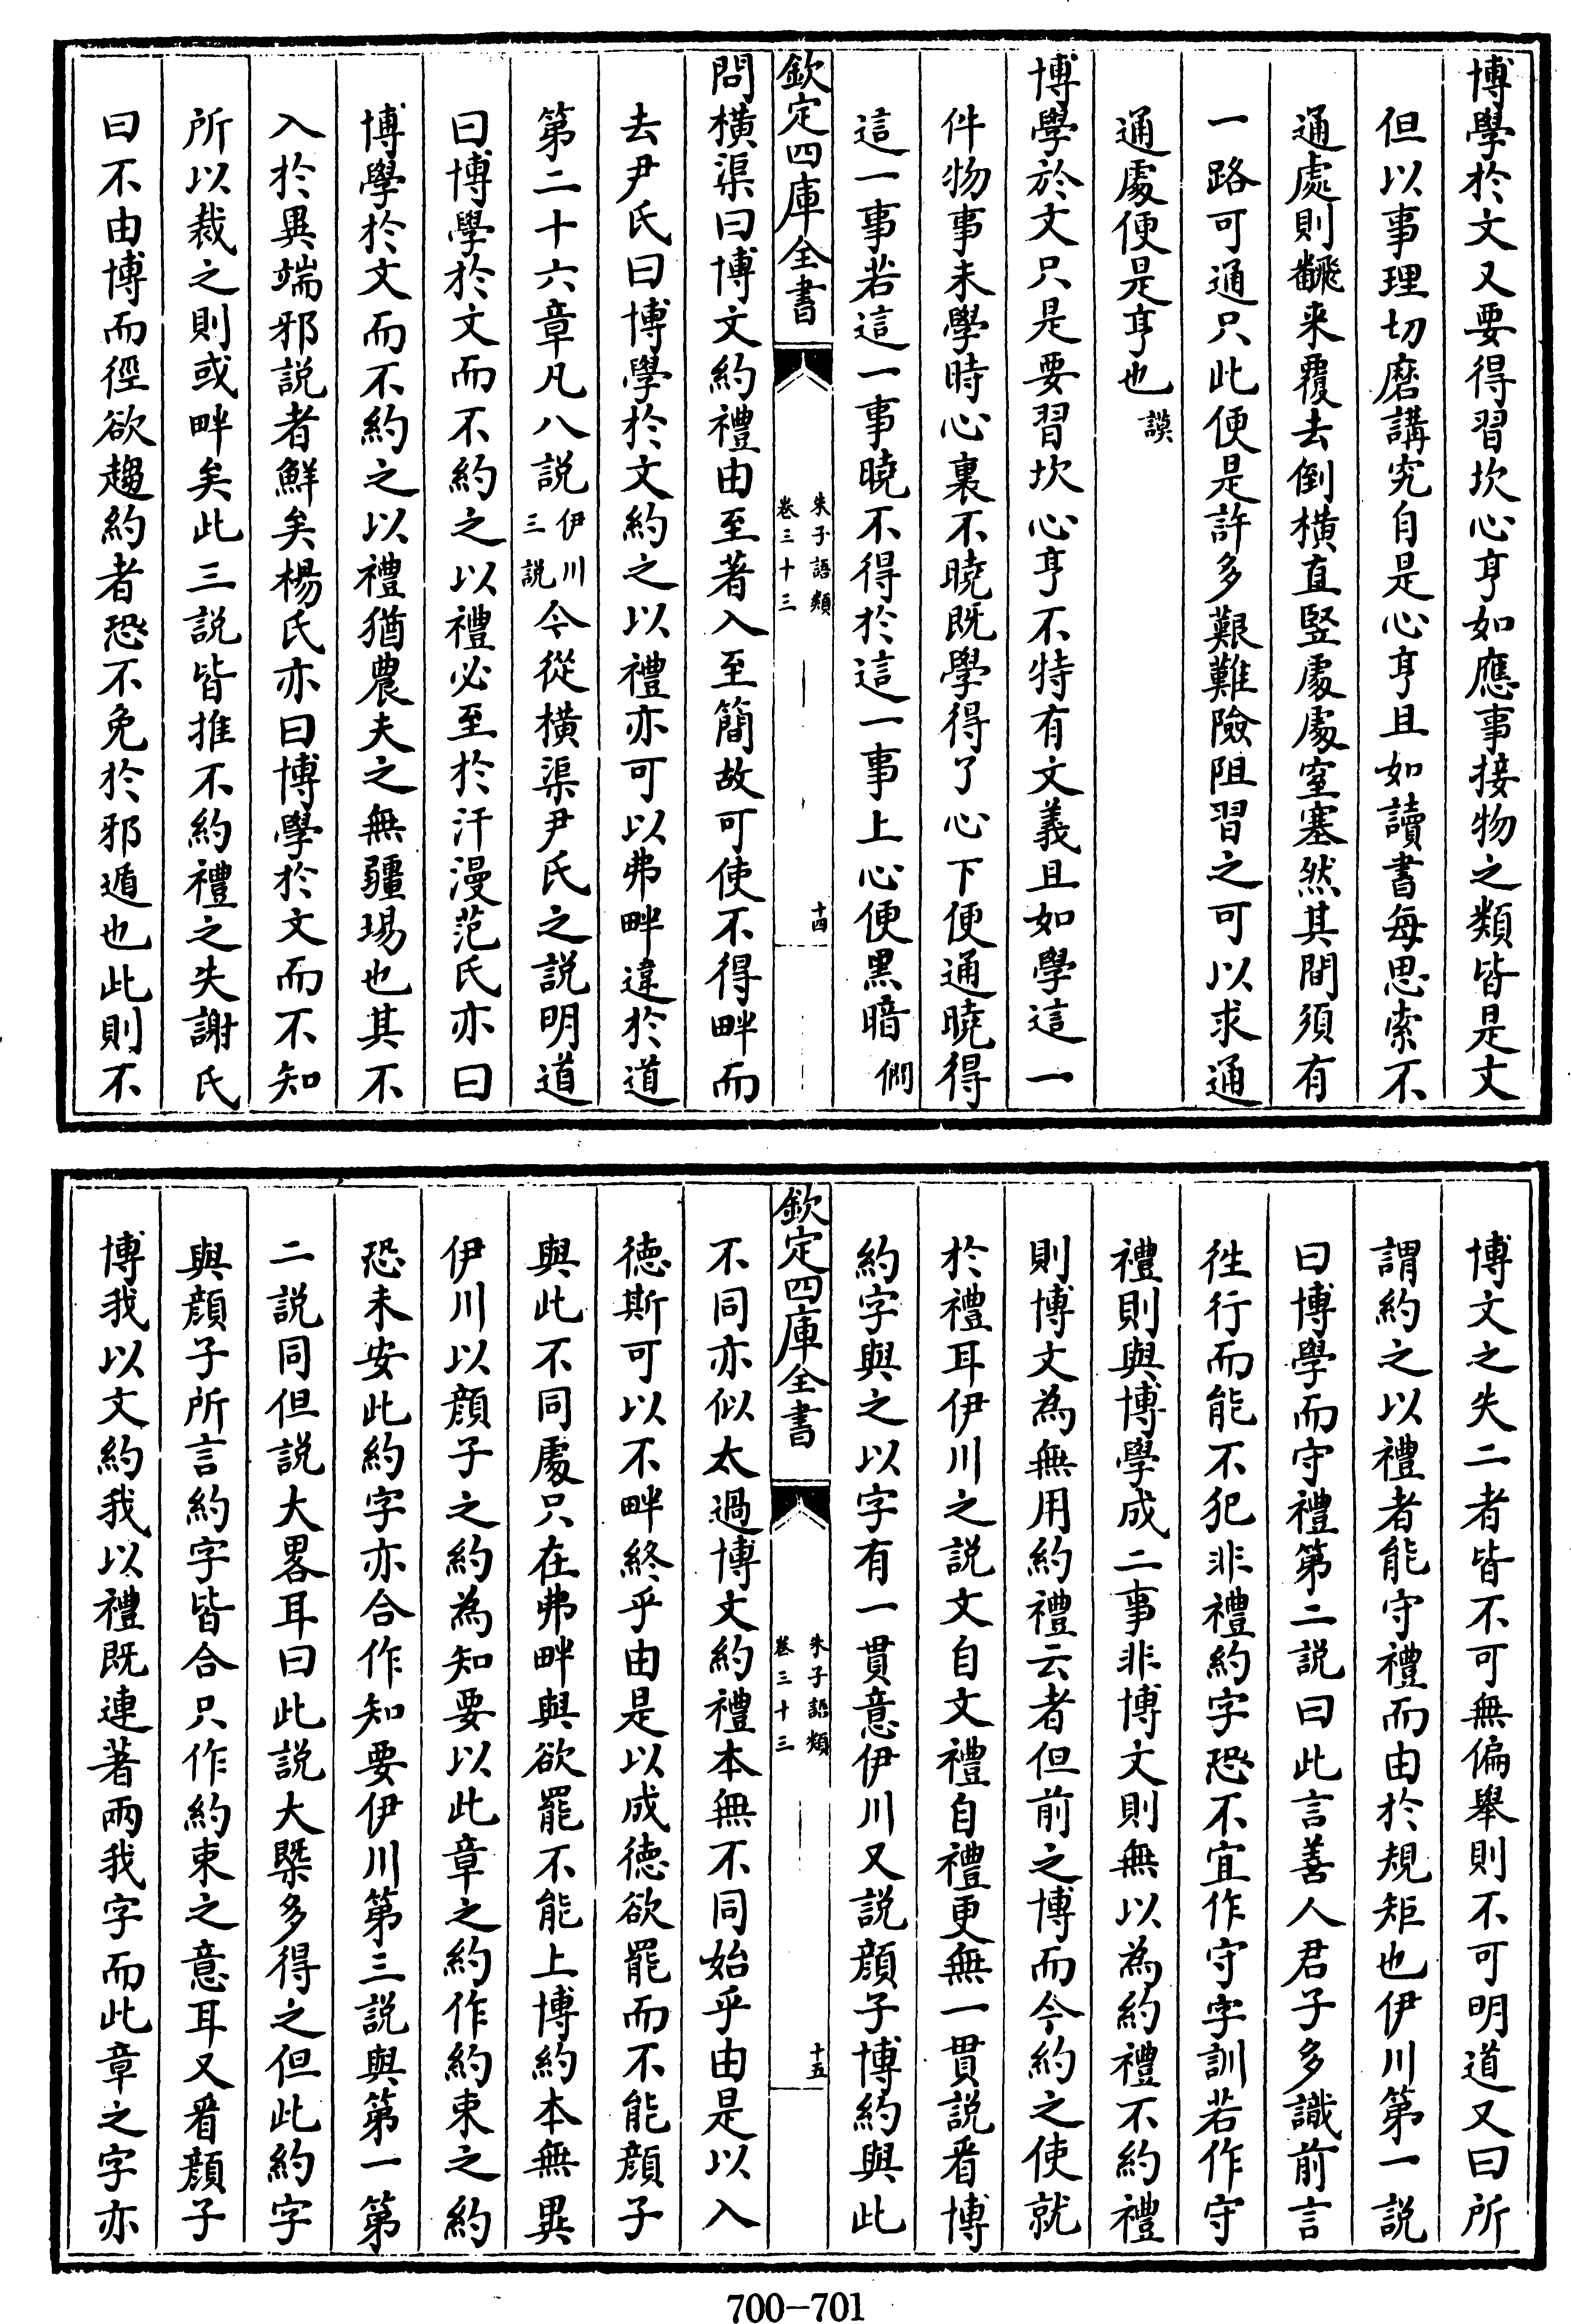 博學於文又要得習坎心亨如應事接物之類皆是文
但以事理切磨講究自是心亨且如讀書每思索不
通處則飜来覆去倒橫直竪處處窒塞然其間須有
一路可通只此便是許多艱難險阻習之可以求通
通處便是亨也謨
博學於文只是要習坎心亨不特有文義且如學這一
件物事未學時心裏不曉既學得了心下便通曉得
這一事若這一事曉不得於這一事上心便黑暗僩
欽定四庫全書
朱子語類
卷三十三
十四
問橫渠曰博文約禮由至著入至簡故可使不得畔而
去尹氏曰博學於文約之以禮亦可以弗畔違於道
第二十六章凡八説伊川三説今從橫渠尹氏之説明道
曰博學於文而不約之以禮必至於汗漫范氏亦曰
博學於文而不約之以禮猶農夫之無疆埸也其不
入於異端邪説者鮮矣楊氏亦曰博學於文而不知
所以裁之則或畔矣此三説皆推不約禮之失謝氏
曰不由博而徑欲趨約者恐不免於邪遁也此則不
博文之失二者皆不可無偏舉則不可明道又曰所
謂約之以禮者能守禮而由於規矩也伊川第一説
曰博學而守禮第二説曰此言善人君子多識前言
徃行而能不犯非禮約字恐不宜作守字訓若作守
禮則與博學成二事非博文則無以為約禮不約禮
則博文為無用約禮云者但前之博而今約之使就
於禮耳伊川之説文自文禮自禮更無一貫説看博
約字與之以字有一貫意伊川又説顔子博約與此
欽定四庫全書
朱子語類
卷三十三
十五
不同亦似太過博文約禮本無不同始乎由是以入
德斯可以不畔終乎由是以成德欲罷而不能顔子
與此不同處只在弗畔與欲罷不能上博約本無異
伊川以顔子之約為知要以此章之約作約束之約
恐未安此約字亦合作知要伊川第三説與第一第
二説同但説大畧耳曰此説大槩多得之但此約字
與顔子所言約字皆合只作約束之意耳又看顔子
博我以文約我以禮既連著兩我字而此章之字亦
700-701